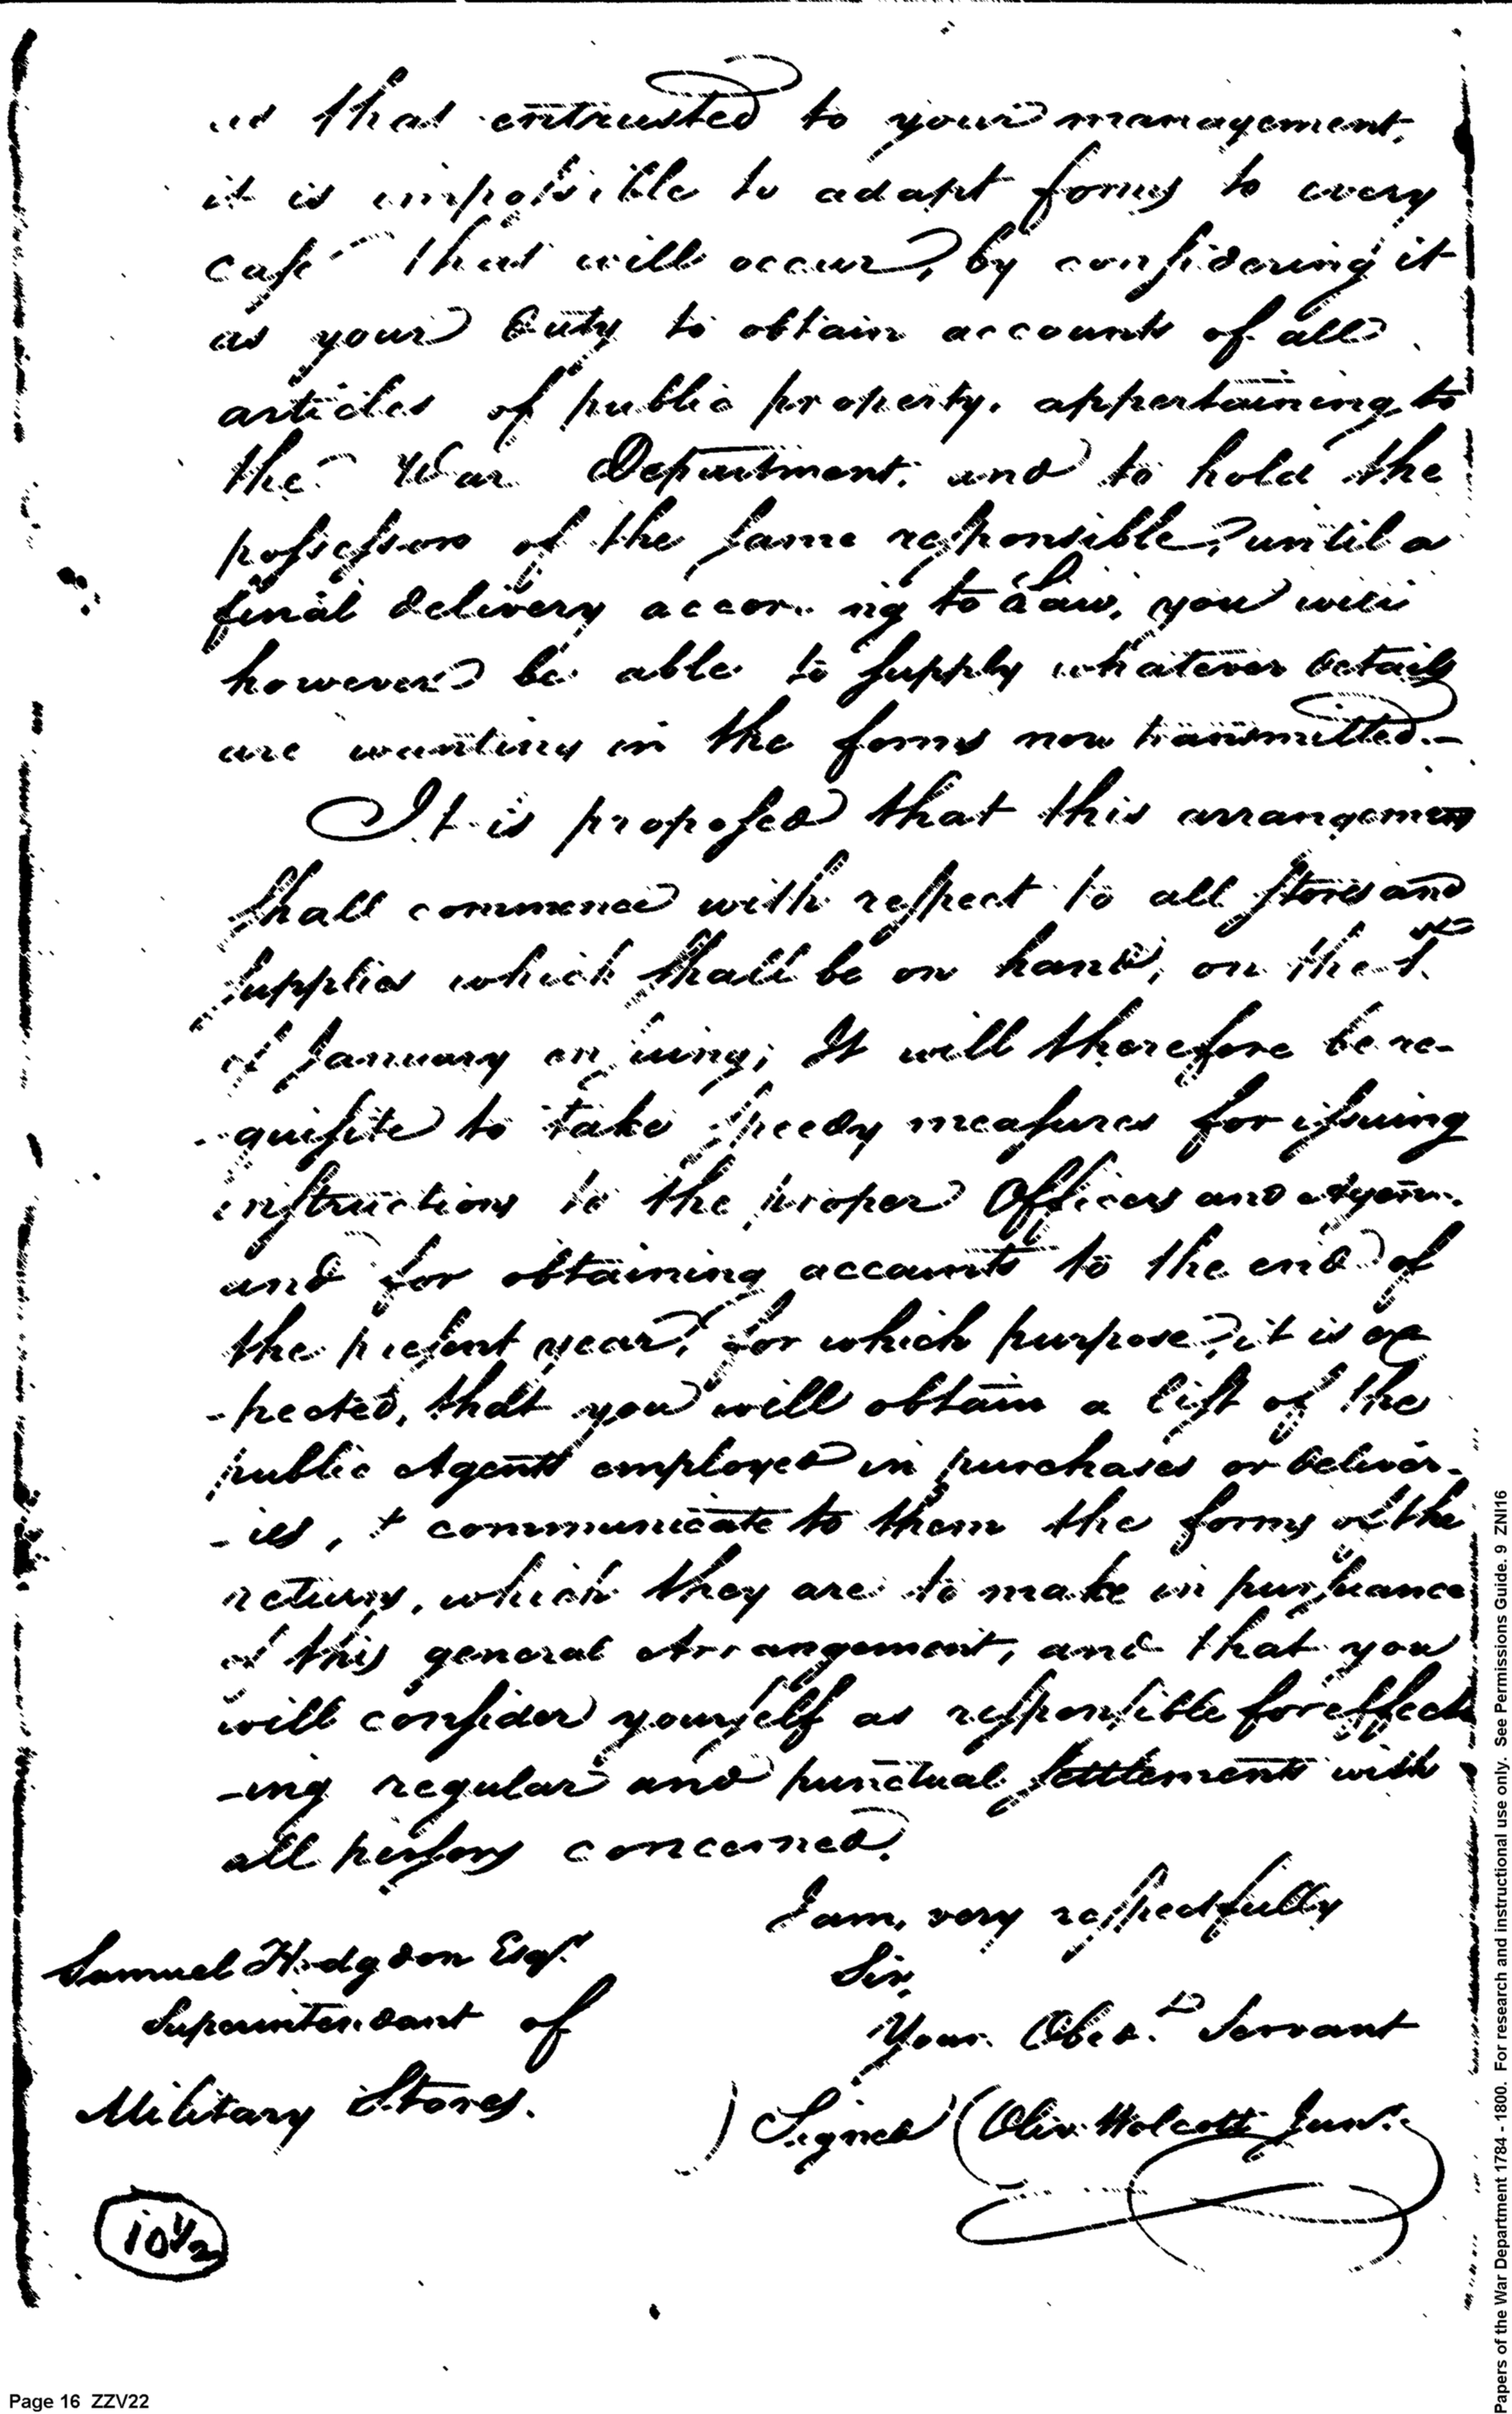 as that entrusted to your management,
it is impossible to adapt forms to every
case that will occur, by considering it
as your Duty to obtain accounts of all
articles of public property, appertaining to
the War Department, and to hold the
possessors of the same responsible, until a
final delivery according to Law, you will
however be able to supply whatever details
are wanting in the forms now transmitted.—
It is proposed that this arrangement
shall commence with respect to all stores and
supplies which shall be on hand, on the 1st
of January ensuing; It will therefore be re-
-quisite to take speedy measures for issuing
instructions to the proper Officers and Agents
and for obtaining accounts to the end of
the present year, for which purpose, it is ex
-pected, that you will obtain a list of the
public Agents employed in purchases or deliver-
-ies, & communicate to them the forms of the
returns, which they are to make in pursuance
of this general Arrangement, and that you
will consider yourself as responsible for effect
-ing regular and punctual settlements with
all persons concerned.
I am, very respectfully
Sir,
Your Obedt Servant
Signed (Oliv. Wolcott Junr.
Samuel Hodgdon Esqr.
Superintendant of
Military Stores.
10 1/2
Page 16 ZZV22
Papers of the War Department 1784 - 1800. For research and instructional use only. See Permissions Guide. 9 ZNI16